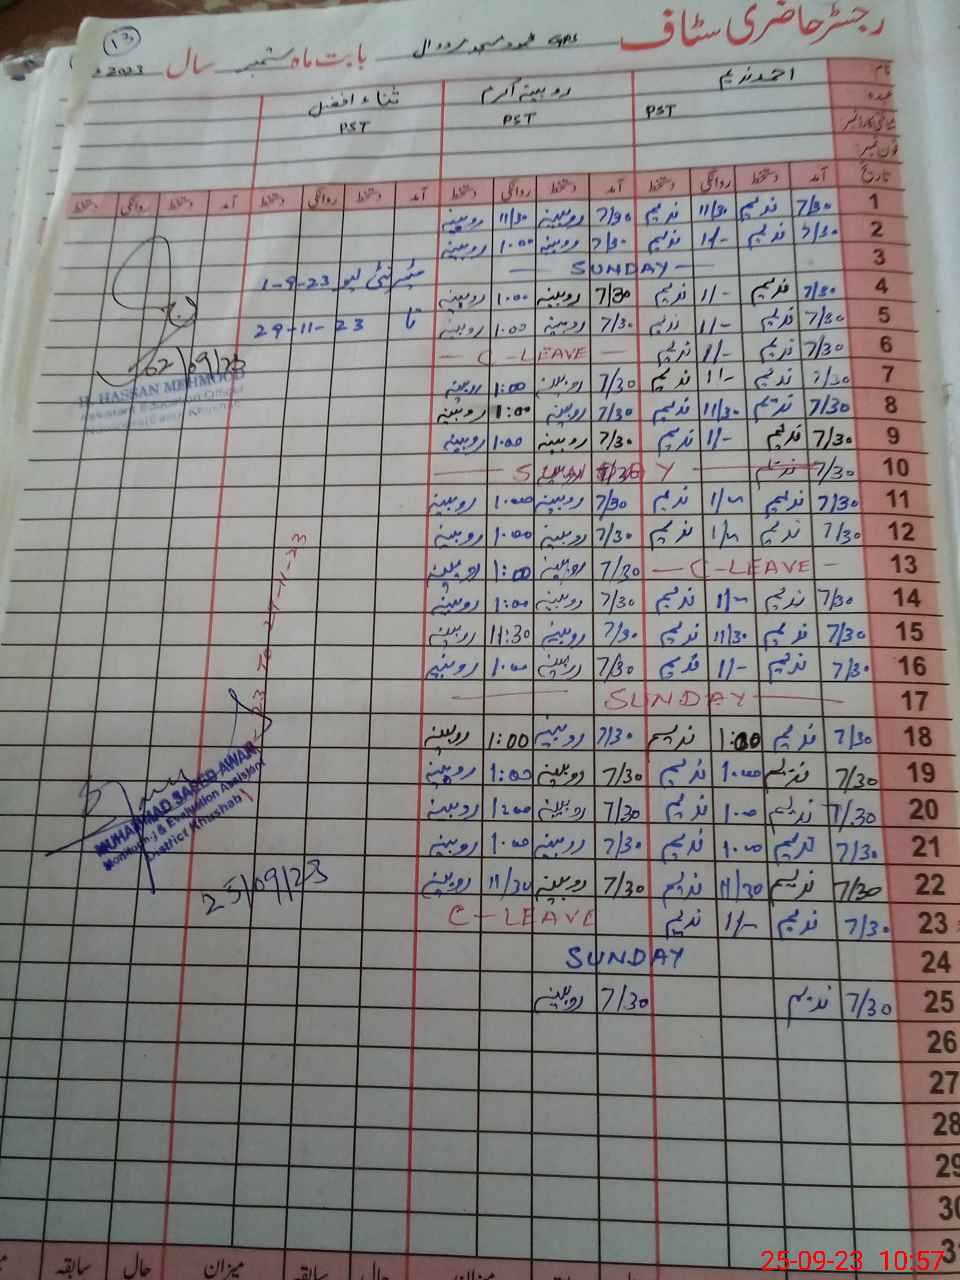 رجسٹر حاضری سٹاف
GPS
بابت ماہ ستمبر سال 2023
13
نام احمد ندیم روبینہ اکرم ثناء افضل
عہدہ PST PST PST
فون نمبر
تاریخ آمد دستخط روانگی دستخط آمد دستخط روانگی دستخط آمد دستخط روانگی دستخط آمد دستخط روانگی دستخط
1 7/30 ندیم 11/30 ندیم 7/30 روبینہ 11/30 روبینہ
2 7/30 ندیم 1/- ندیم 7/30 روبینہ 1:00 روبینہ
3 — SUNDAY —
1-9-23
4 7/30 ندیم 1/- ندیم 7/30 روبینہ 1:00 روبینہ
5 7/30 ندیم 1/- ندیم 7/30 روبینہ 1:00 روبینہ تا 29-11-23
6 7/30 ندیم 1/- ندیم — C-LEAVE —
02/09/23
7 7/30 ندیم 1/- ندیم 7/30 روبینہ 1:00 روبینہ
HASSAN MEHMOOD
Assistant Education Officer
8 7/30 ندیم 11/30 ندیم 7/30 روبینہ 1:00 روبینہ
9 7/30 ندیم 1/- ندیم 7/30 روبینہ 1:00 روبینہ
10 7/30 ندیم
11 7/30 ندیم 1/- ندیم 7/30 روبینہ 1:00 روبینہ
12 7/30 ندیم 1/- ندیم 7/30 روبینہ 1:00 روبینہ
13 — C-LEAVE — 7/30 روبینہ 1:00 روبینہ
14 7/30 ندیم 1/- ندیم 7/30 روبینہ 1:00 روبینہ
15 7/30 ندیم 11/30 ندیم 7/30 روبینہ 11:30 روبینہ
16 7/30 ندیم 1/- ندیم 7/30 روبینہ 1:00 روبینہ
17 — SUNDAY —
18 7/30 ندیم 1:00 ندیم 7/30 روبینہ 1:00 روبینہ
19 7/30 ندیم 1:00 ندیم 7/30 روبینہ 1:00 روبینہ
MUHAMMAD SAEED AWAN
Monitoring & Evaluation Assistant
District Khushab
20 7/30 ندیم 1:00 ندیم 7/30 روبینہ 1:00 روبینہ
21 7/30 ندیم 1:00 ندیم 7/30 روبینہ 1:00 روبینہ
22 7/30 ندیم 11/30 ندیم 7/30 روبینہ 11/30 روبینہ
25/09/23
23 7/30 ندیم 1/- ندیم C-LEAVE
24 SUNDAY
25 7/30 ندیم 7/30 روبینہ
26
27
28
29
30
31
میزان حال سابقہ میزان حال سابقہ
25-09-23 10:57